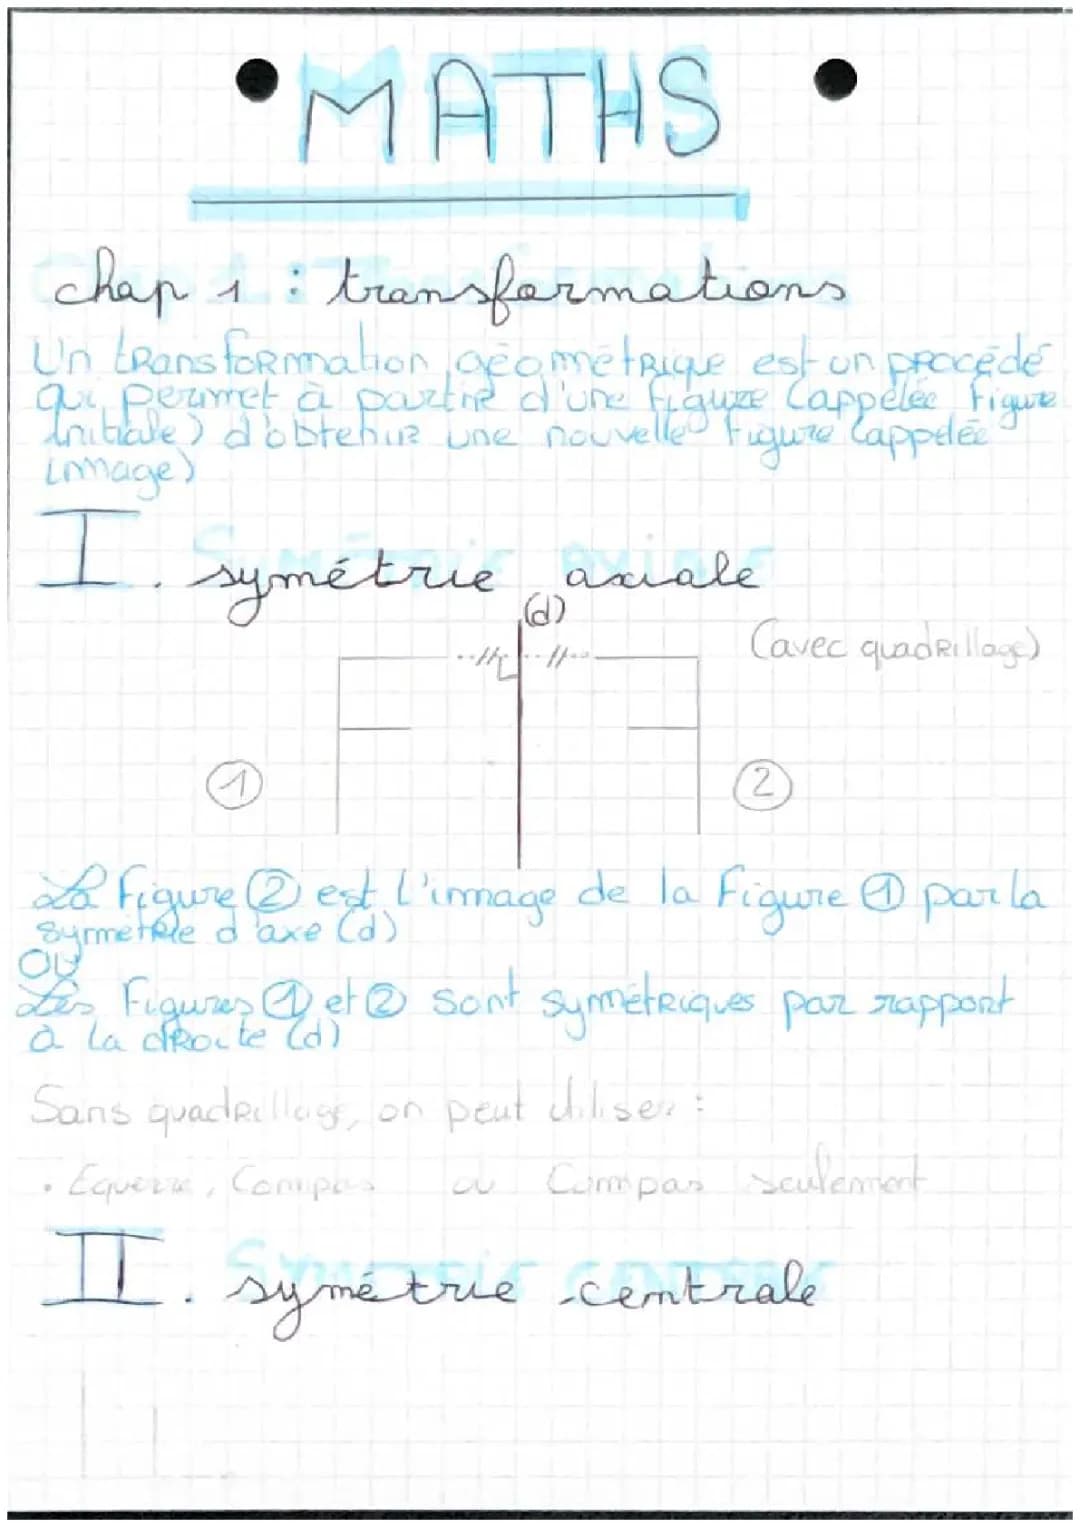 MATHS
chap 1 : transformations
Un transformation géométrique est un procédé
qui permet à partir d'une figure (appelée figure
initiale) d'obtenir une nouvelle figure (appelée
image)
I. symétrie axiale
(d)
(avec quadrillage)
1 2
La figure 2 est l'image de la figure 1 par la
symétrie d'axe (d)
OU
Les figures 1 et 2 sont symétriques par rapport
à la droite (d)
Sans quadrillage, on peut utiliser :
• Equerre, Compas ou Compas seulement
II. symétrie centrale